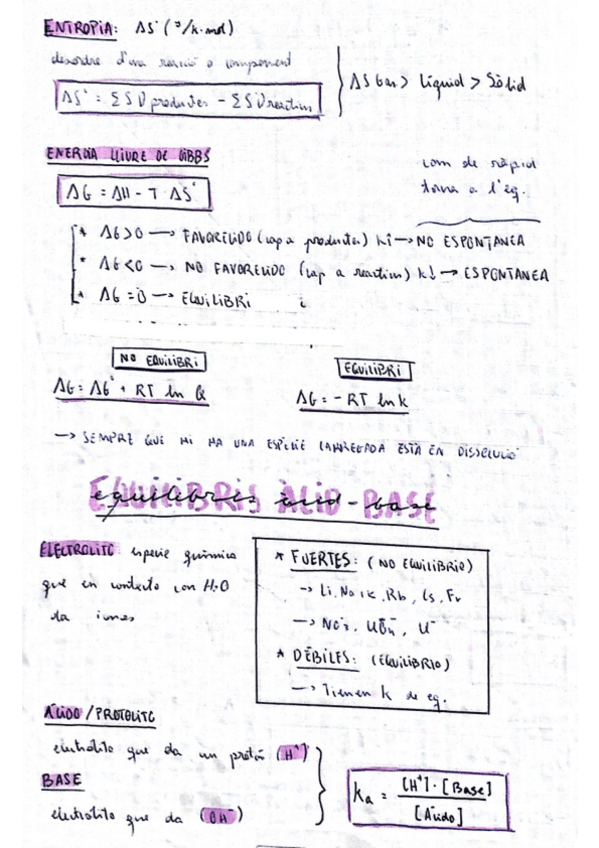 ENTROPIA: ΔS° (J/K·mol)
desordre d'una reacció o component
ΔS° = Σ S° productes - Σ S° reactius
ΔS Gas > Líquid > Sòlid
ENERGIA LLIURE DE GIBBS
ΔG = ΔH - T · ΔS°
com de ràpid
torna a l'eq.
* ΔG>0 → FAVORECIDO (cap a productes) K↑ → NO ESPONTANEA
* ΔG<0 → NO FAVORECIDO (cap a reactius) K↓ → ESPONTANEA
* ΔG = 0 → EQUILIBRI
NO EQUILIBRI
ΔG = ΔG° + RT ln Q
EQUILIBRI
ΔG = - RT ln K
→ SEMPRE QUE HI HA UNA ESPÈCIE CARREGADA ESTÀ EN DISSOLUCIÓ
EQUILIBRIS ÀCID-BASE
ELECTROLITO especie química
que en contacto con H2O
da iones
* FUERTES: (NO EQUILIBRIO)
→ Li, Na, K, Rb, Cs, Fr
→ NO3-,
* DÉBILES: (EQUILIBRIO)
→ Tienen K de eq.
ÁCIDO / PROTOLITO
electrolito que da un protón (H+)
BASE
electrolito que da (OH-)
Ka = [H+] · [Base] / [Ácido]